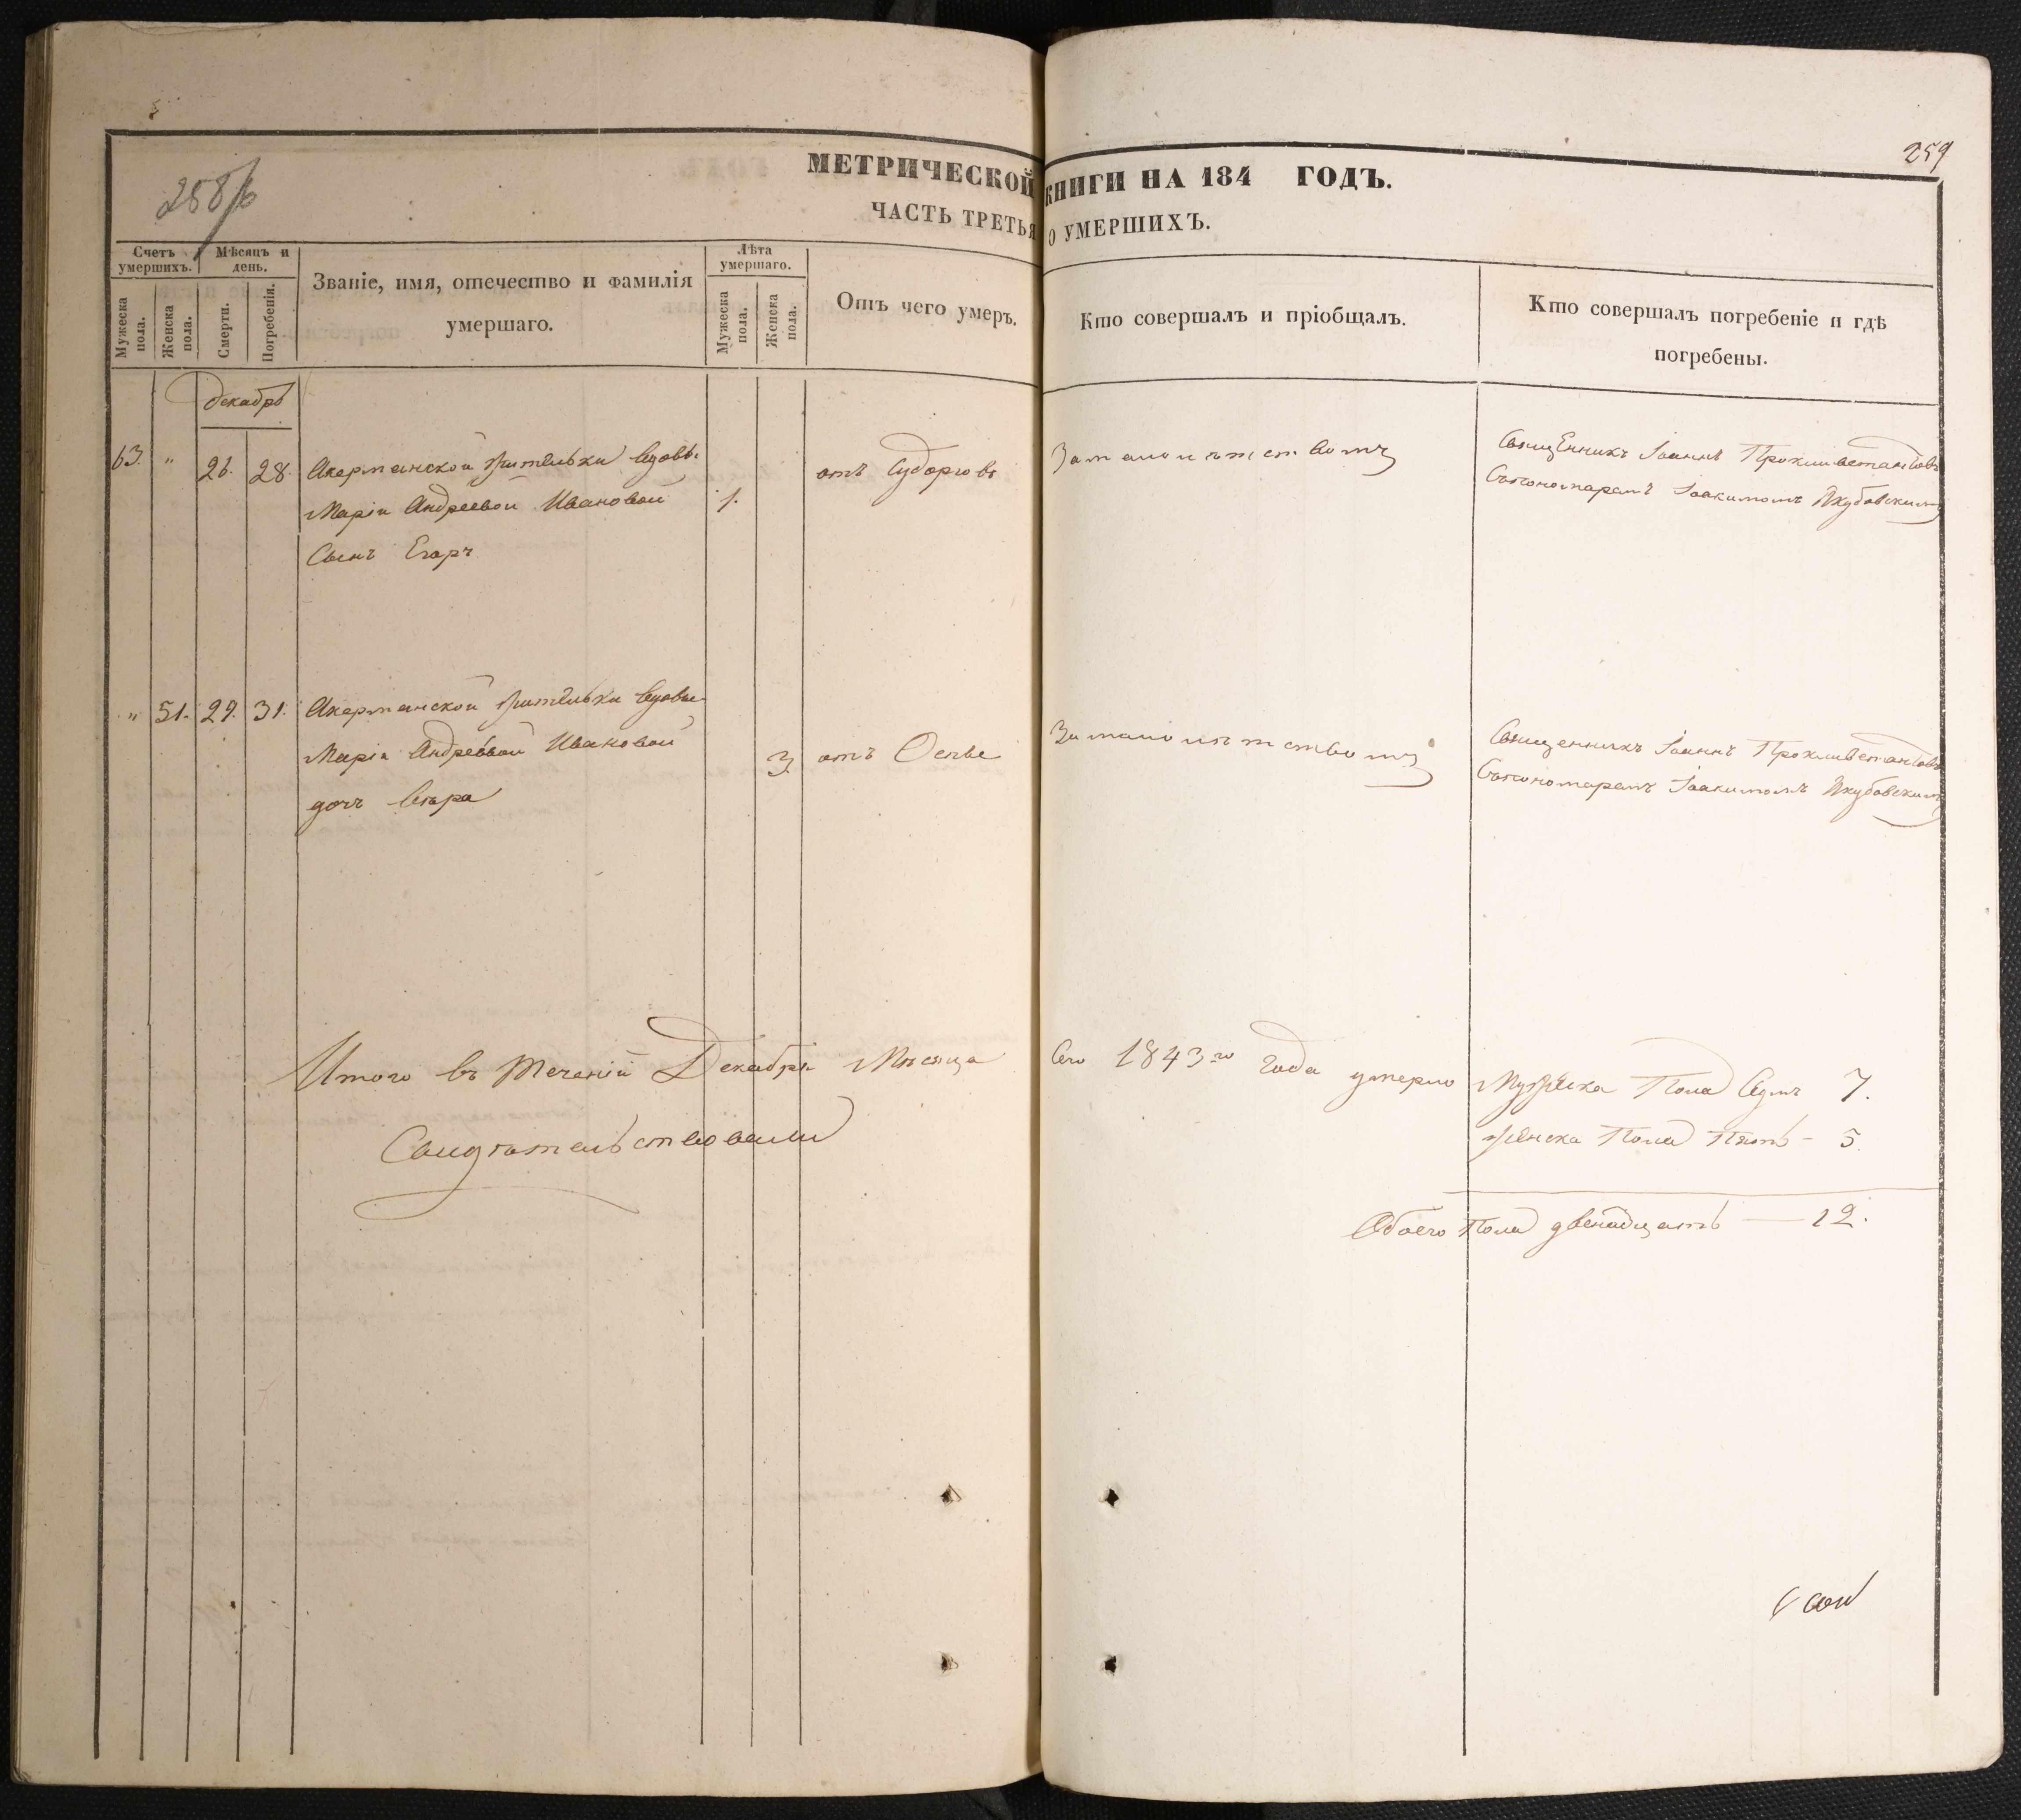 259
258/б
МЕТРИЧЕСКОЙ КНИГИ НА 184 ГОДЪ.
ЧАСТЬ ТРЕТЬЯ О УМЕРШИХЪ.
Счетъ умершихъ.
Мужеска пола.
Женска пола.
Мѣсяцъ и день.
Смерти.
Погребенія.
Званіе, имя, отечество и фамилія умершаго.
Лѣта умершаго.
Мужеска пола.
Женска пола.
Отъ чего умеръ.
Кто совершалъ и пріобщалъ.
Кто совершалъ погребеніе и гдѣ погребены.
декабрь
63. " 26. 28. Акерманской жительки вдовы
Маріи Андреевой Ивановой
Сынъ Егоръ
1.
отъ Судорговъ
За малолѣтствомъ
Священникъ Іоаннъ
Спономаремъ Іоакимомъ Якубовскимъ
" 51. 29. 31. Акерманской жительки вдовы
Маріи Андреевой Ивановой
дочь Вѣра
3. отъ Оспы
За малолѣтствомъ
Священникъ Іоаннъ
Спономаремъ Іоакимомъ Якубовскимъ
Итого въ теченіи Декабря Мѣсяца Сего 1843го года умерло Мужеска Пола Седмъ 7.
Женска Пола Пять - 5.
Свидѣтельствовали
Обоего Пола двенадцать — 12.